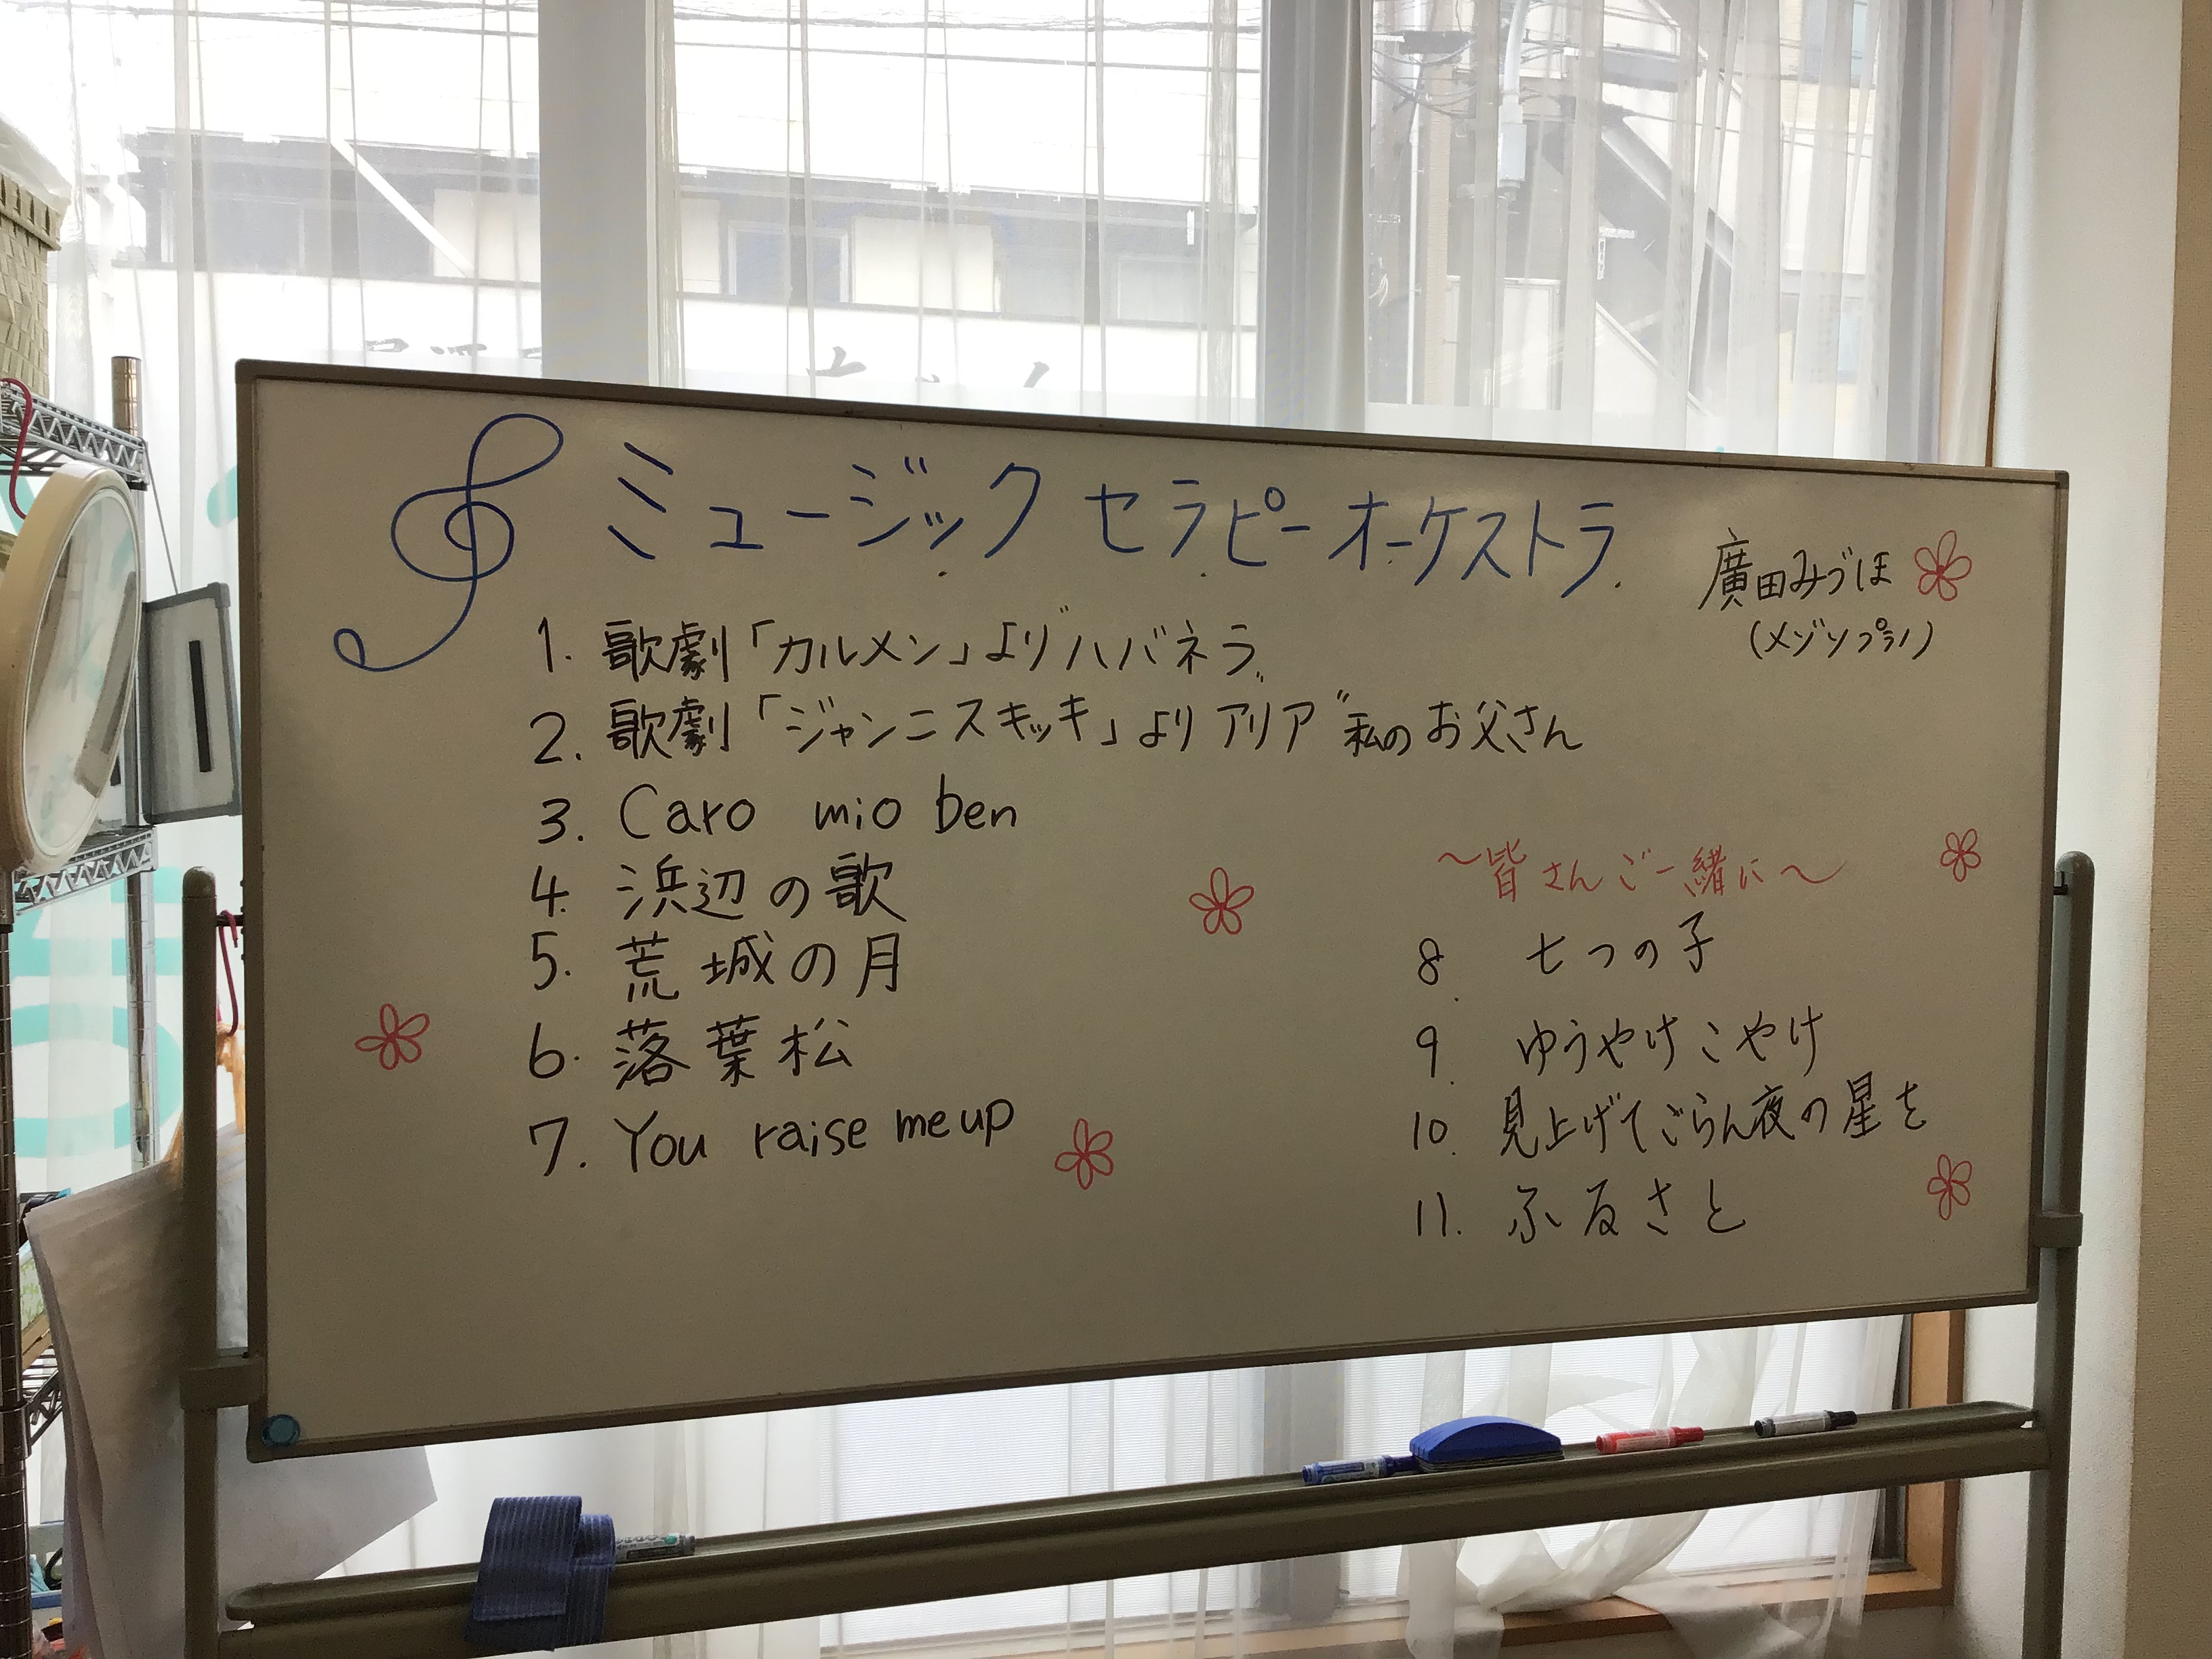 ミュージック セラピーオーケストラ
廣田みづほ
(メゾソプラノ)
1. 歌劇「カルメン」より"ハバネラ"
2. 歌劇「ジャンニスキッキ」よりアリア"私のお父さん
3. Caro mio ben
4. 浜辺の歌
5. 荒城の月
6. 落葉松
7. You raise me up
〜皆さんご一緒に〜
8. 七つの子
9. ゆうやけこやけ
10. 見上げてごらん夜の星を
11. ふるさと